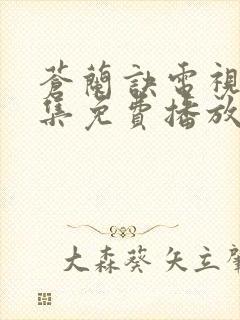 蒼蘭訣電視
集免費播放
大森葵 矢立肇